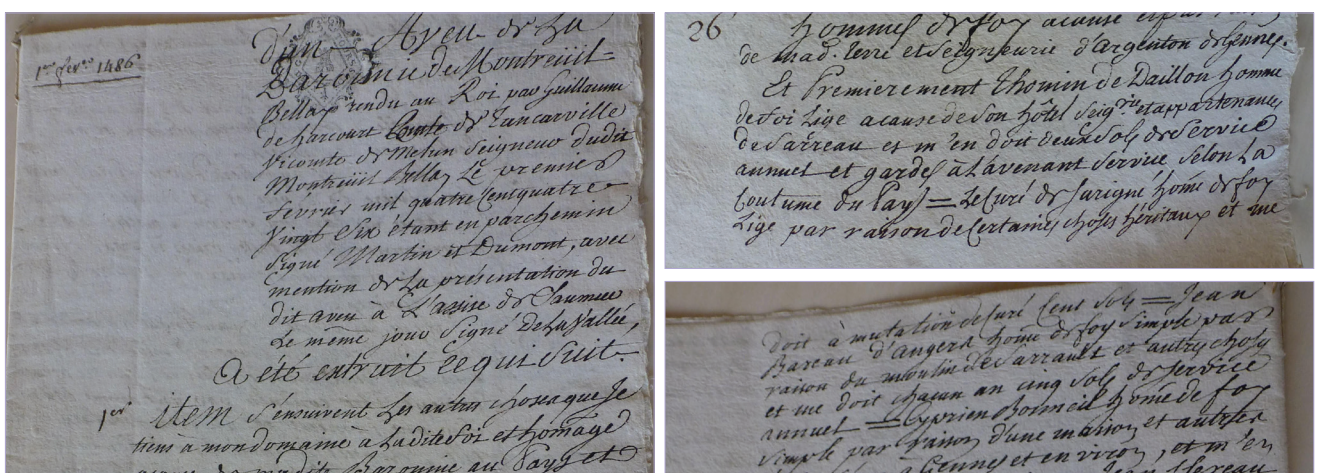 1er fevr. 1486
D'un Aveu de La
Baronnie de Montreüil-
Bellay rendu au Roi par Guillaume
de harcourt Comte de Tancarville
Vicomte de Melun Seigneur dudit
Montreüil Bellay Le premier
fevrier mil quatre Cent quatre
Vingt Six étant en parchemin
Signé Martin et Dumont, avec
mention de La présentation du
dit aveu à L'assise de Saumur
Le même jour Signé De La Vallée,
A été extrait ce qui Suit.
1er item S'ensuivent Les autres choses que Je
tiens à mon domaine à Ladite foi et homage
Baronie au Pays et
26 hommes de foy acause
de mad. terre et Seigneurie d'argenton de Gennes.
Et Premierement Thomin de Daillon homme
de foi Lige acause de Son hôtel Seigrie et appartenances
de Sarreau et m'en doit deux Sols de Service
annuel et gardes à L'avenant Service Selon La
Coutume du Pays = Le Curé de Sarigné hôme de foy
Lige par raison de Certaines choses héritaux et me
doit à mutation de Curé Cent Sols = Jean
Bareau d'angers hôme de foy Simple par
raison du moulin de Sarrault et autres choses
et me doit chacun an cinq Sols de Service
annuel = Cyprien hôme de foy
Simple par raison d'une maison et autres
à Gennes et environ, et m'en